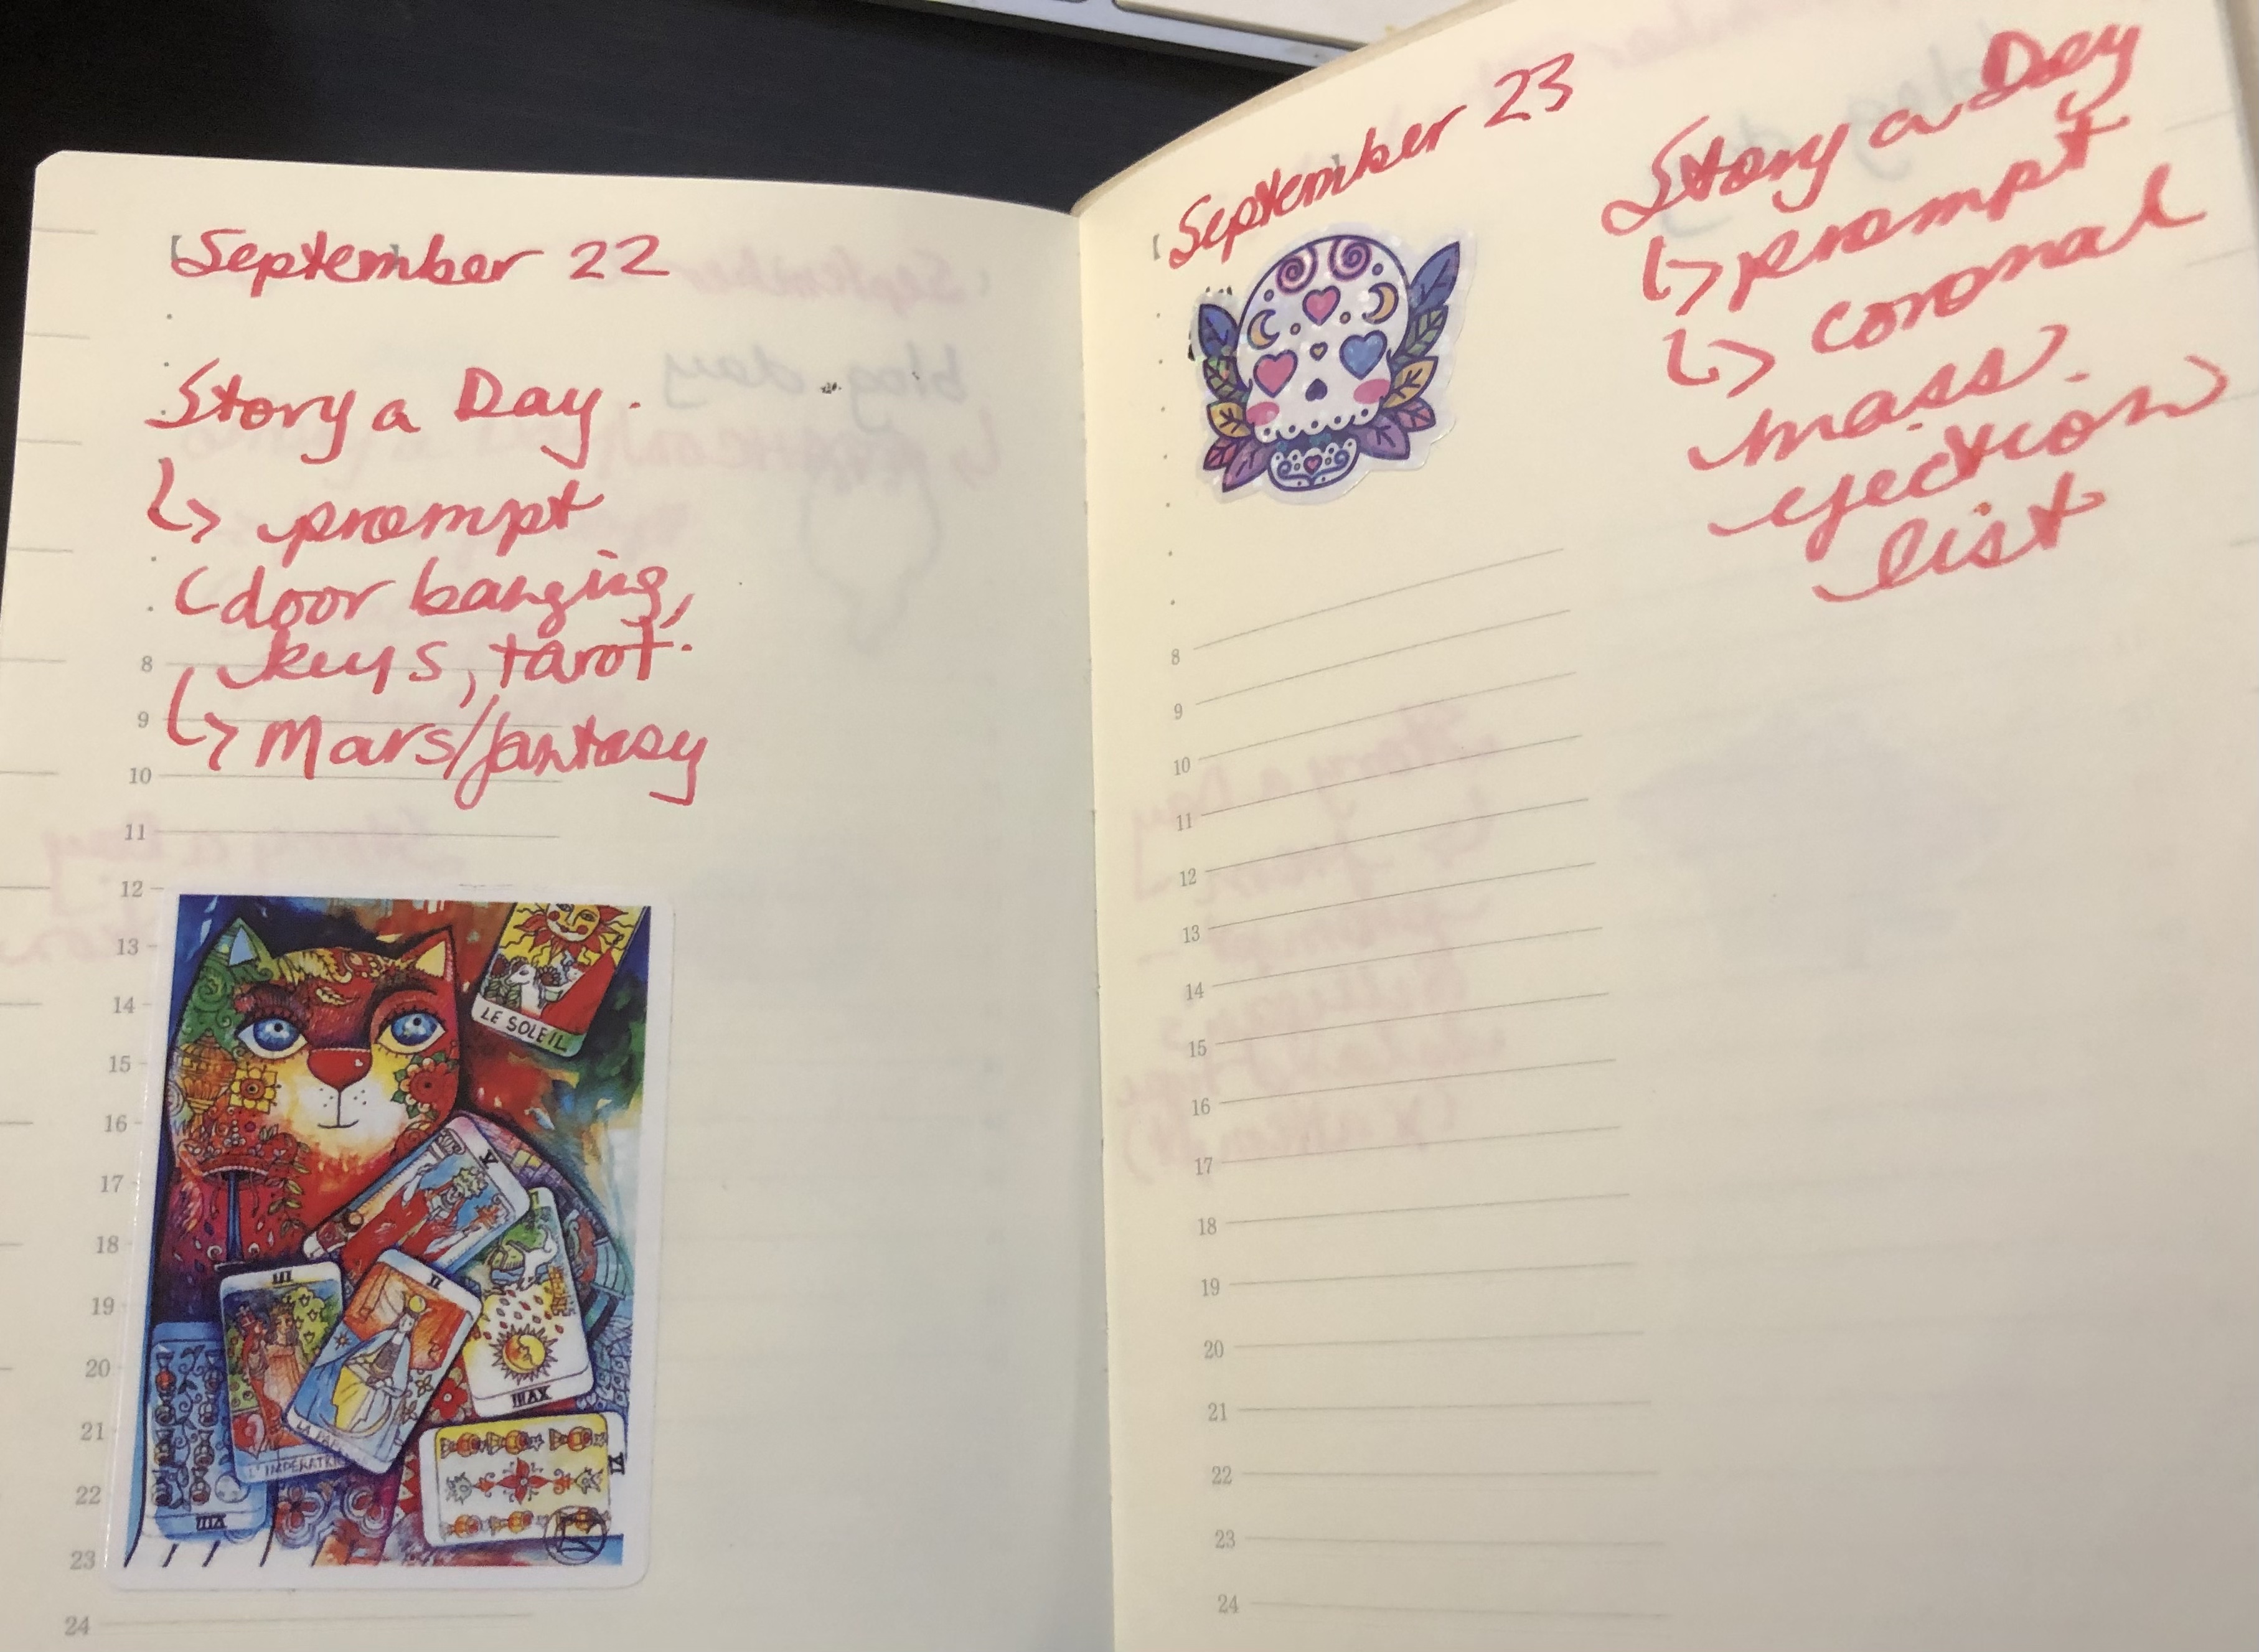 September 22
Story a Day.
↳ prompt
(door banging,
keys, tarot.
↳ Mars/fantasy
8
9
10
11
12
13
14
15
16
17
18
19
20
21
22
23
24
LE SOLEIL
V
III
II
L'IMPÉRATRI
XVIII
VIII
VI
September 23
Story a Day
↳ prompt
↳ coronal
mass
ejection
list
8
9
10
11
12
13
14
15
16
17
18
19
20
21
22
23
24